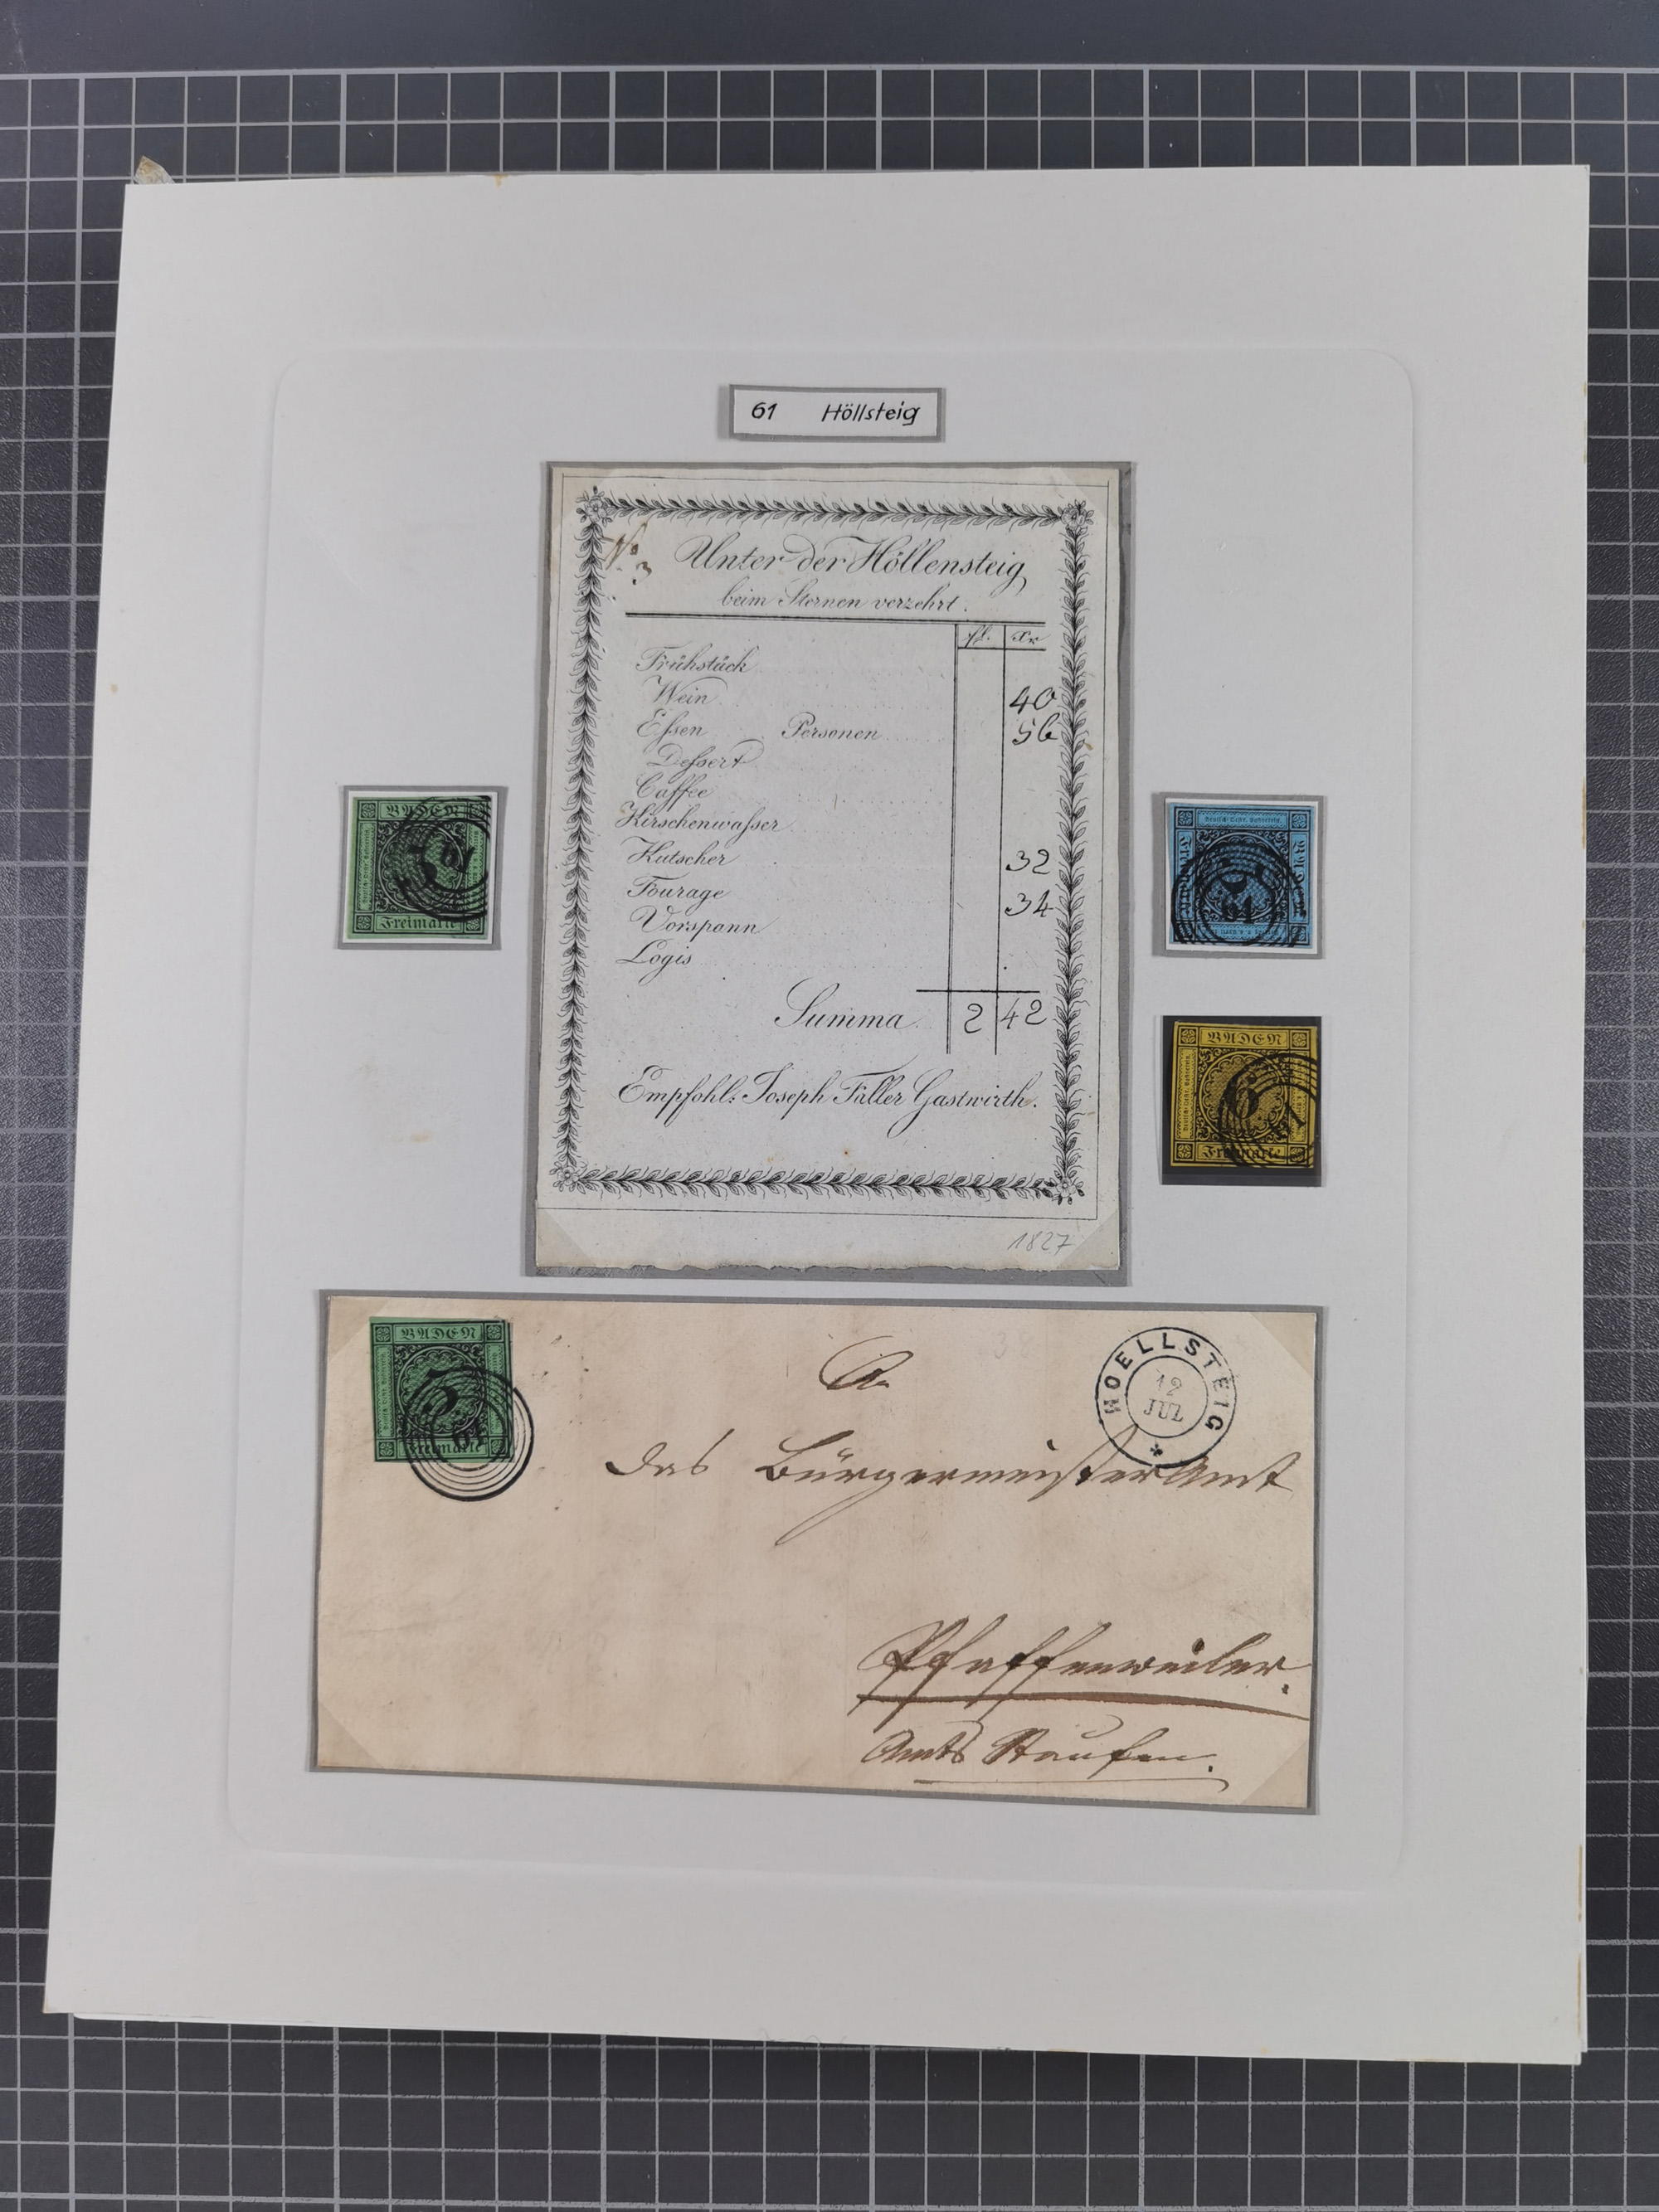 61 Höllsteig
No. 3
Unter der Höllensteig
beim Sternen verzehrt.
fl. Xr
Frühstück
Wein 40
Essen Personen 56
Dessert
Caffee
Kirschenwasser
Kutscher 32
Fourage 34
Vorspann
Logis
Summa 2 42
Empfohl: Joseph Faller Gastwirth.
1827
BADEN
5
61
Freimarke
Baden
3
61
Freimarke
BADEN
6
61
Freimarke
BADEN
5
61
Freimarke
HOELLSTEIG
12
JUL
An
das Bürgermeisteramt
Pfaffenweiler.
Amts Staufen.